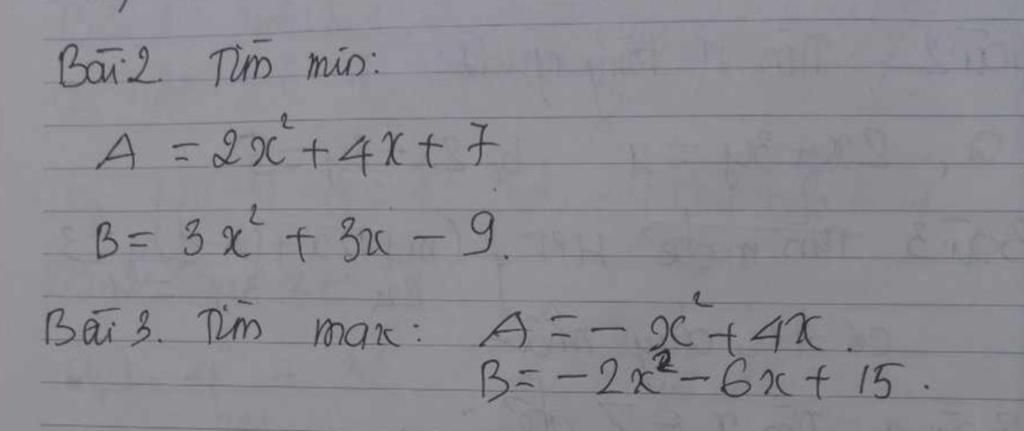 Bài 2. Tìm min:
A = 2x² + 4x + 7
B = 3x² + 3x - 9.
Bài 3. Tìm max: A = - x² + 4x.
B = -2x² - 6x + 15.